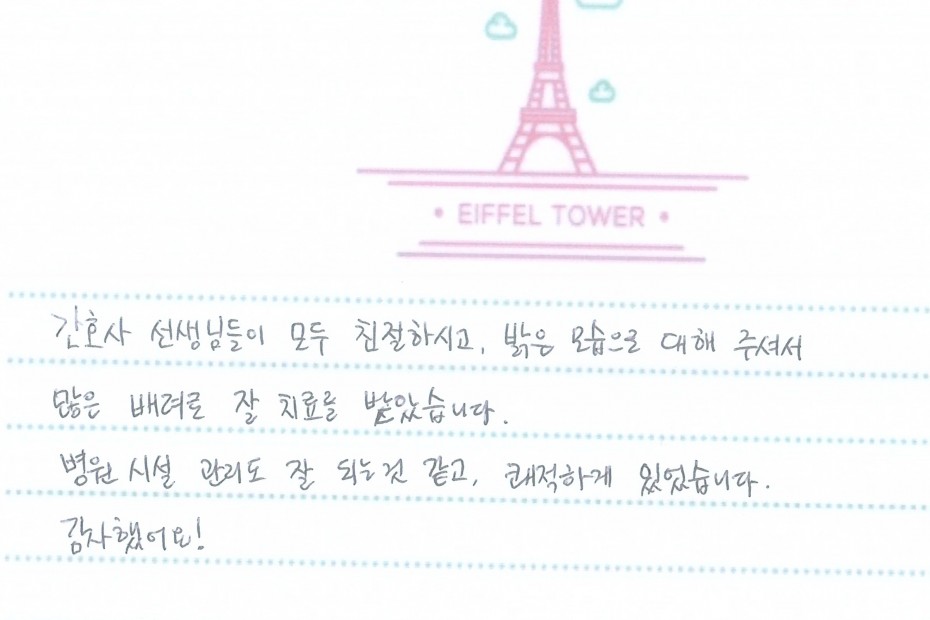 • EIFFEL TOWER •
간호사 선생님들이 모두 친절하시고, 밝은 모습으로 대해 주셔서
많은 배려로 잘 치료를 받았습니다.
병원 시설 관리도 잘 되는것 같고, 쾌적하게 있었습니다.
감사했어요!